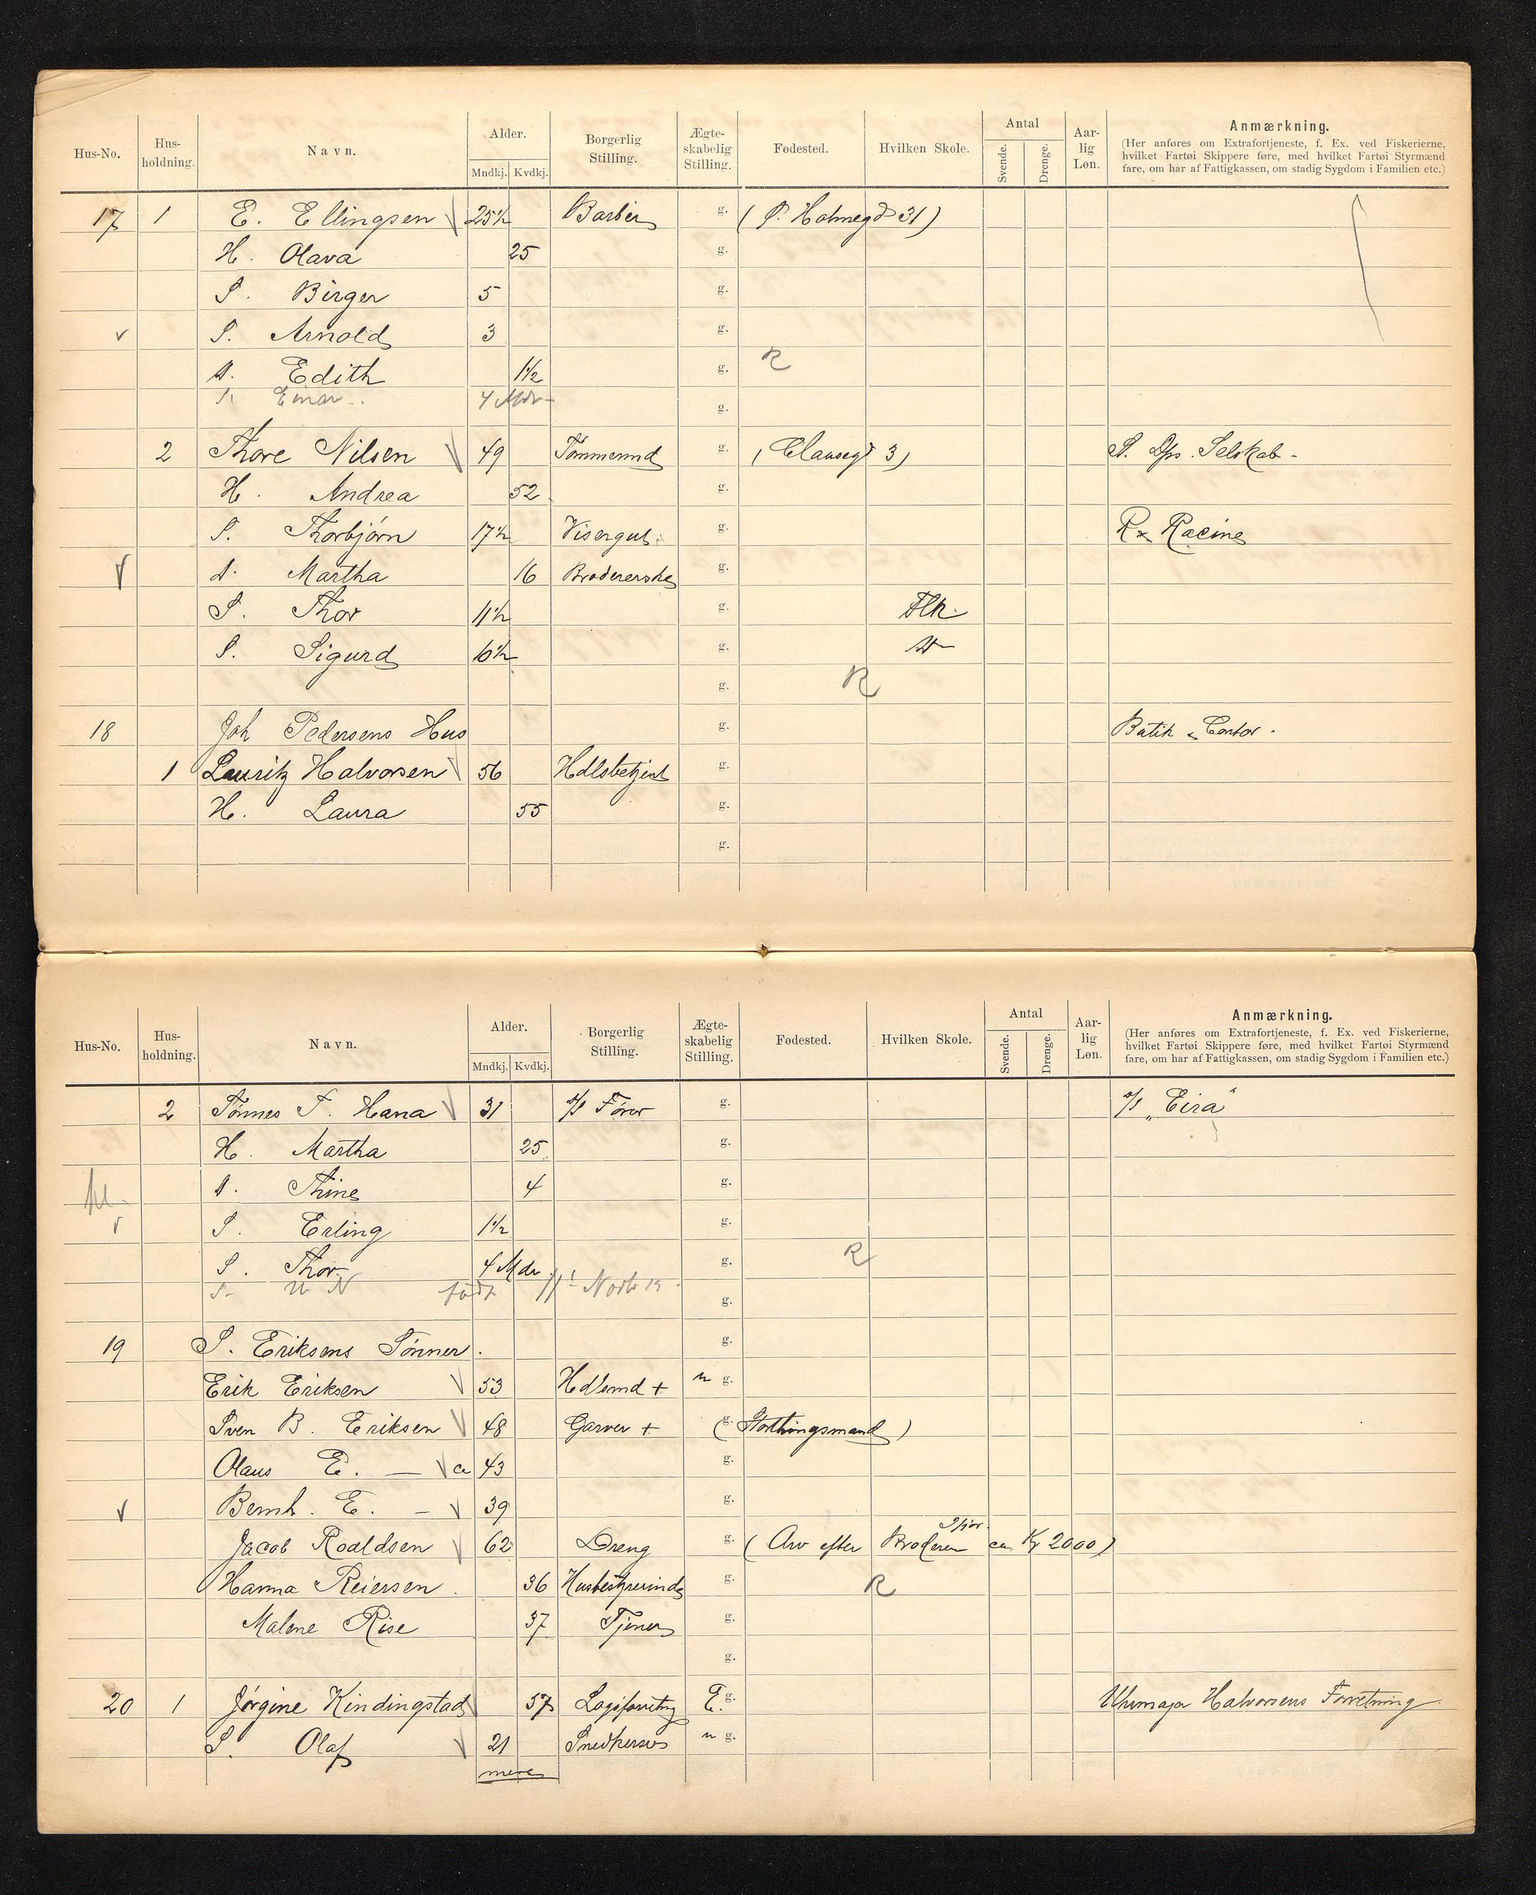 Hus-No. Hus-holdning. Navn. Alder. Mndkj. Kvdkj. Borgerlig Stilling. Ægte-skabelig Stilling. Fødested. Hvilken Skole. Antal Svende. Drenge. Aar-lig Løn. Anmærkning.
(Her anføres om Extrafortjeneste, f. Ex. ved Fiskerierne,
hvilket Fartøi Skippere føre, med hvilket Fartøi Styrmænd
fare, om har af Fattigkassen, om stadig Sygdom i Familien etc.)
17 1 E. Ellingsen 25½ Barber g. (P. Holmegd 31)
H. Olava 25 g.
S. Birger 5 g.
S. Arnold 3 g.
D. Edith 1½ g. R
S. Einar 4 Mdr g.
2 Thore Nilsen 49 Tømmermd g. (Clausegt 3) S. Dps. Selskab
H. Andrea 52 g.
S. Thorbjørn 17½ Visergut g. Racine
D. Martha 16 Brodererske g.
S. Thor 11½ g. Flk.
S. Sigurd 10½ g.
g. R
18 Joh Pedersens Hus g. Butik & Contor.
1 Lauritz Halvorsen 56 Hdlsbetjent g.
H. Laura 55 g.
g.
Hus-No. Hus-holdning. Navn. Alder. Mndkj. Kvdkj. Borgerlig Stilling. Ægte-skabelig Stilling. Fødested. Hvilken Skole. Antal Svende. Drenge. Aar-lig Løn. Anmærkning.
(Her anføres om Extrafortjeneste, f. Ex. ved Fiskerierne,
hvilket Fartøi Skippere føre, med hvilket Fartøi Styrmænd
fare, om har af Fattigkassen, om stadig Sygdom i Familien etc.)
2 Tønnes T. Hana 31 D/S Fører g. D/S „Eira"
H. Martha 25 g.
D. Thine 4 g.
S. Erling 1½ g.
S. Thor 4 Mdr g. R
S. U N født Novb 19 g.
19 S. Eriksens Sønner. g.
Erik Eriksen 53 Hdlsmd + u g.
Sven B. Eriksen 48 Garver + g. (Storthingsmand)
Olaus E. — ca 43 g.
Bernh. E. — 39 g.
Jacob Roaldsen 62 Dreng g. (Arv efter Broderen ca Kr 2000)
Hanna Reiersen. 36 Husbestyrerinde g. R
Malene Rise 37 Tjener g.
g.
20 1 Jørgine Kindingstad 57 Logiforretng E. g. Uhrmager Halvorsens Forretning
S. Olaf 21 Snedkersv u g.
mere